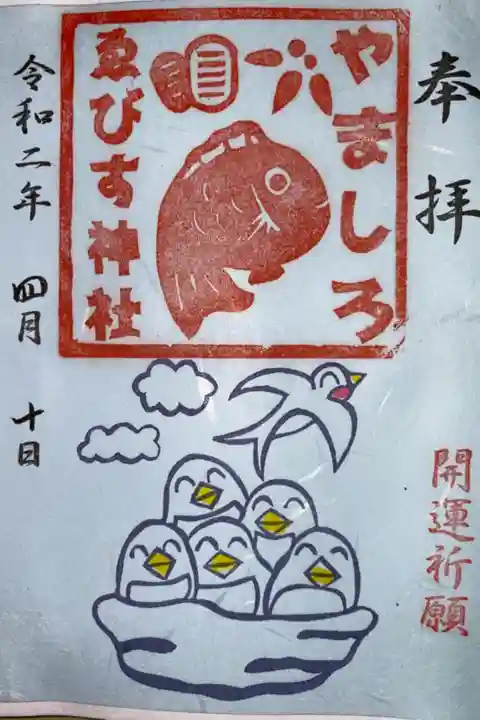 奉拝
やましろ
ゑびす神社
令和二年 四月 十日
開運祈願